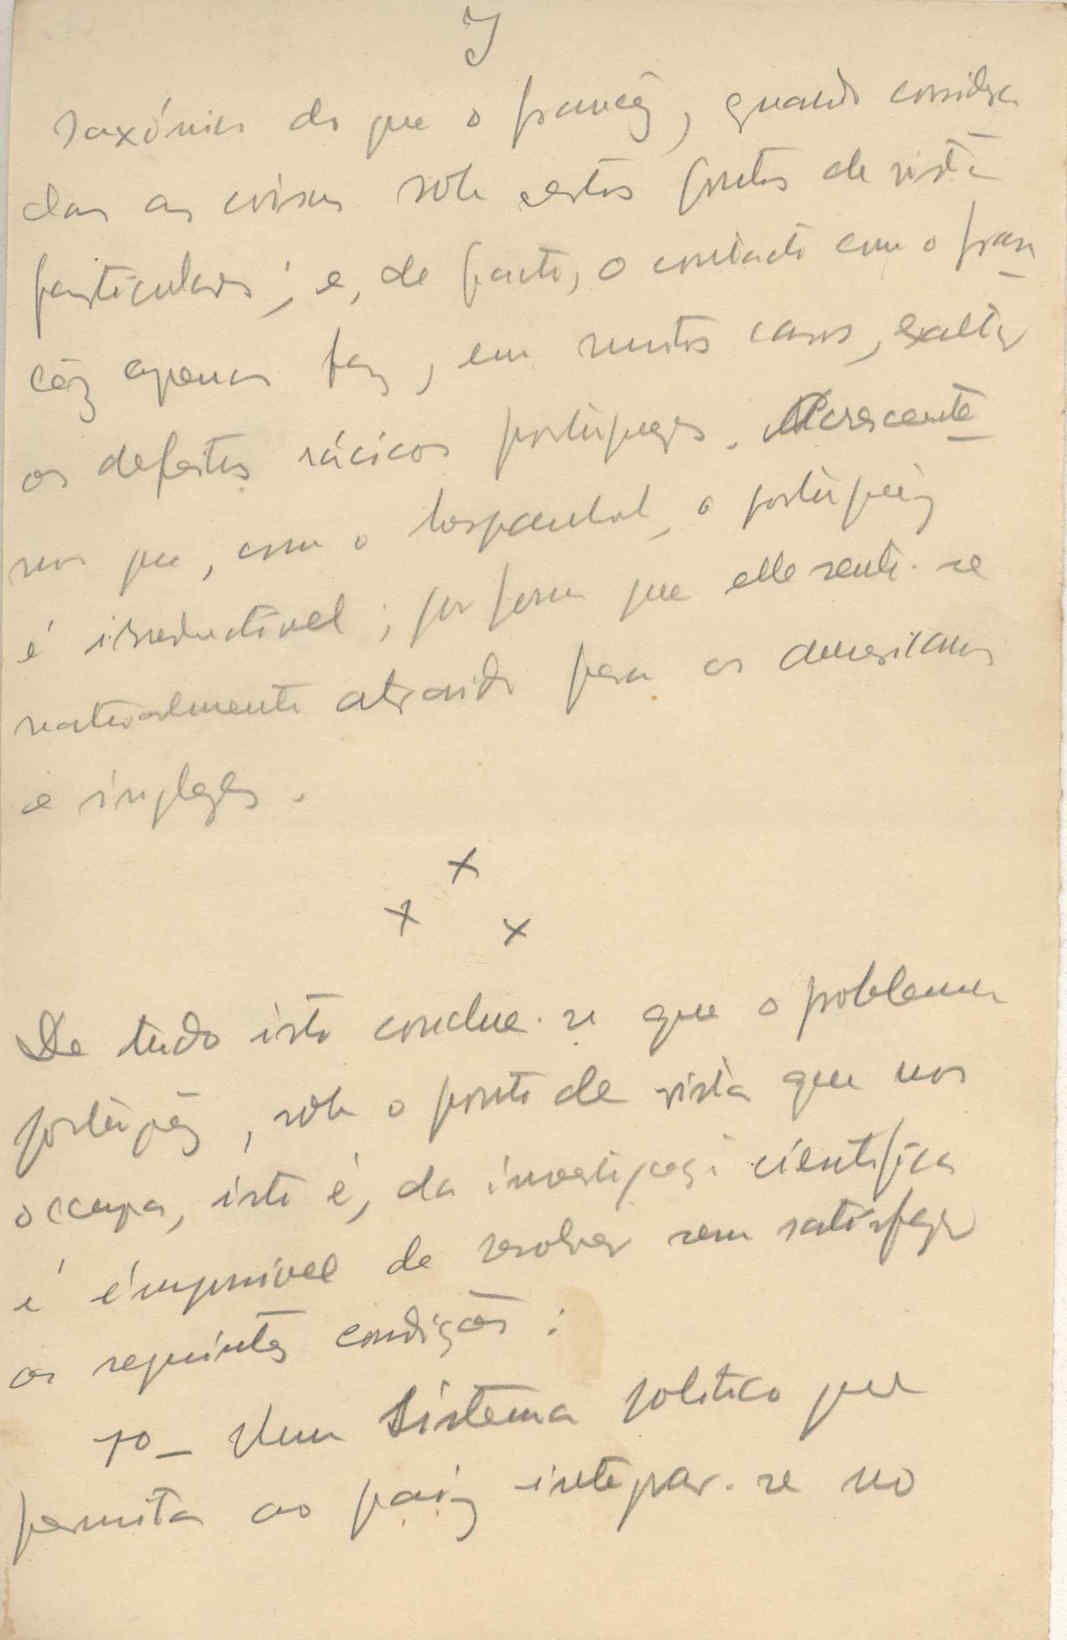 saxónico do que o francêz, quando considera
das as coisas sob certos pontos de vista
particulares; e, de facto, o contacto com o fran
cêz apenas faz, em muitos casos, exaltar
os defeitos rácicos portuguezes. Acrescente
mos que, como o hespanhol, o portuguêz
é irreductivel; por forma que elle sente-se
naturalmente atraido para os americanos
e inglezes.
x
x x
De tudo isto conclue-se que o problema
portuguêz, sob o ponto de vista que nos
occupa, isto é, da investigação cientifica
é impossivel de resolver sem satisfazer
as seguintes condições:
1o_ Num sistema politico que
permita ao paiz integrar-se no